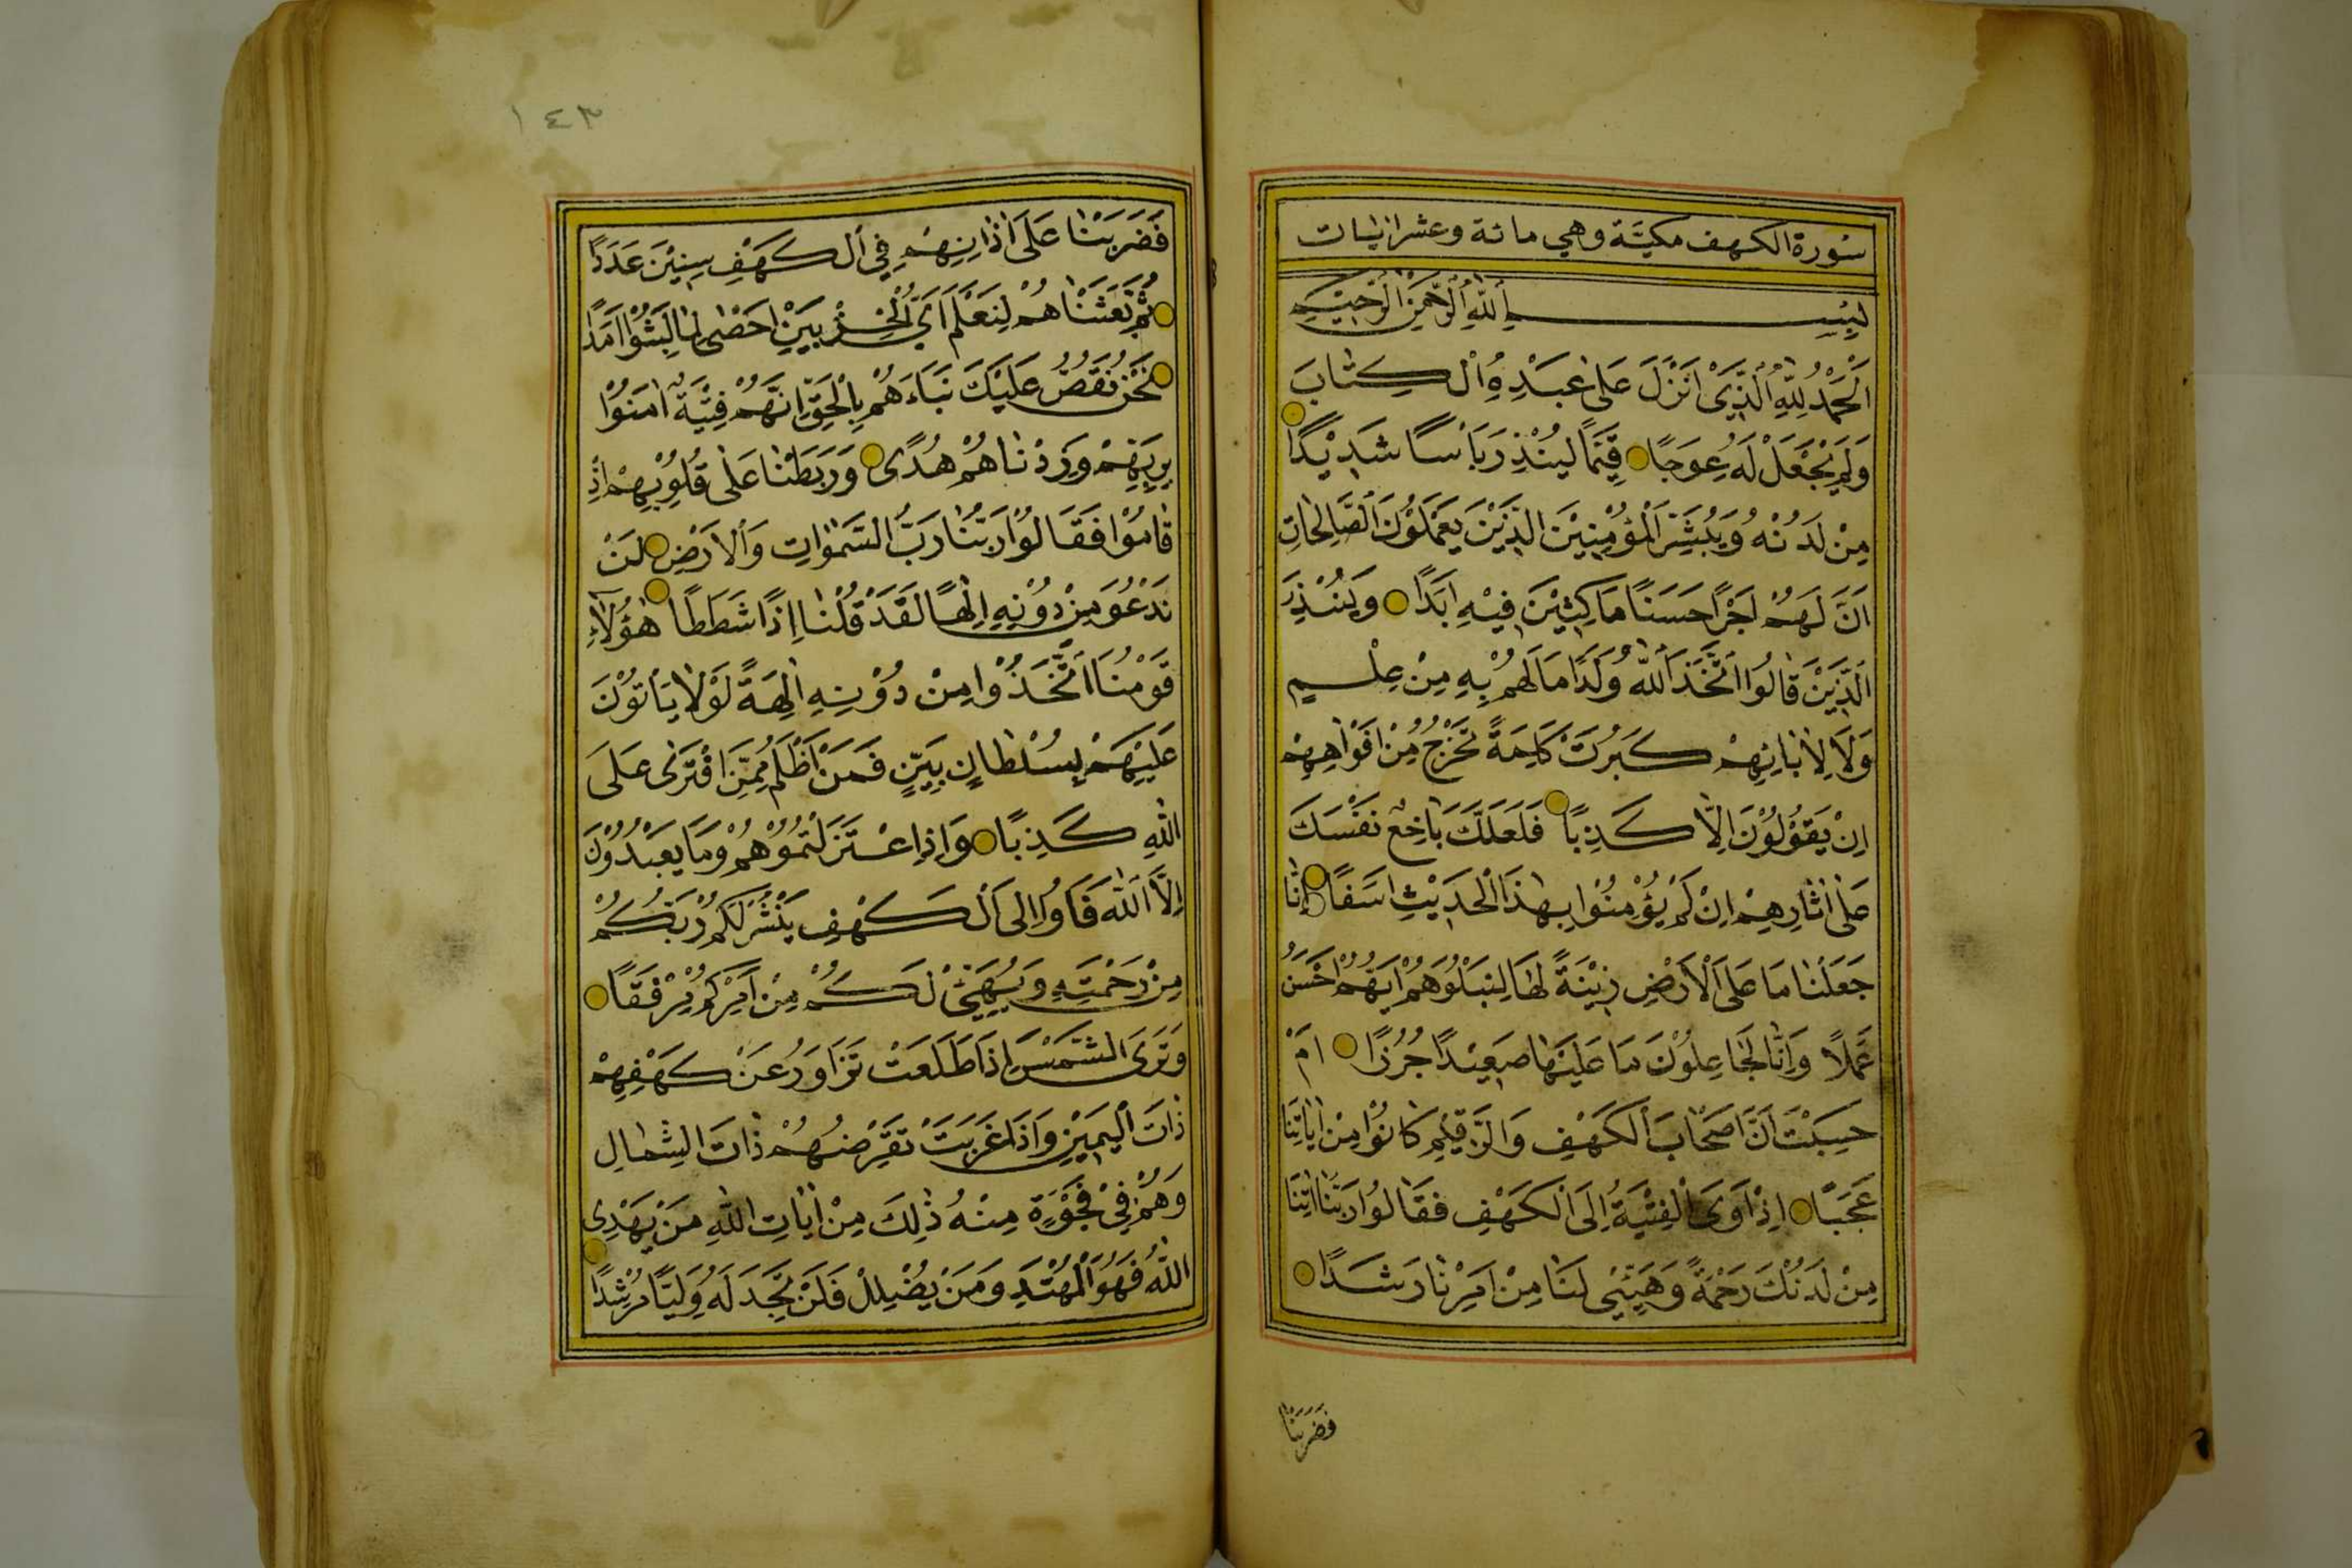 سُورة الكهف مكيَّة وهي مائة وعشر اٰيات
بِسْمِ اللّٰهِ الرَّحْمٰنِ الرَّحِيْمِ
اَلْحَمْدُ لِلّٰهِ الَّذِيْ اَنْزَلَ عَلٰى عَبْدِهِ الْكِتَابَ
وَلَمْ يَجْعَلْ لَهُ عِوَجًا قَيِّمًا لِيُنْذِرَ بَأْسًا شَدِيْدًا
مِنْ لَدُنْهُ وَيُبَشِّرَ الْمُؤْمِنِيْنَ الَّذِيْنَ يَعْمَلُوْنَ الصَّالِحَاتِ
اَنَّ لَهُمْ اَجْرًا حَسَنًا مَاكِثِيْنَ فِيْهِ اَبَدًا وَيُنْذِرَ
الَّذِيْنَ قَالُوا اتَّخَذَ اللّٰهُ وَلَدًا مَا لَهُمْ بِهِ مِنْ عِلْمٍ
وَلَا لِاٰبَائِهِمْ كَبُرَتْ كَلِمَةً تَخْرُجُ مِنْ اَفْوَاهِهِمْ
اِنْ يَقُوْلُوْنَ اِلَّا كَذِبًا فَلَعَلَّكَ بَاخِعٌ نَفْسَكَ
عَلٰى اٰثَارِهِمْ اِنْ لَمْ يُؤْمِنُوْا بِهٰذَا الْحَدِيْثِ اَسَفًا اِنَّا
جَعَلْنَا مَا عَلَى الْاَرْضِ زِيْنَةً لَهَا لِنَبْلُوَهُمْ اَيُّهُمْ اَحْسَنُ
عَمَلًا وَاِنَّا لَجَاعِلُوْنَ مَا عَلَيْهَا صَعِيْدًا جُرُزًا اَمْ
حَسِبْتَ اَنَّ اَصْحَابَ الْكَهْفِ وَالرَّقِيْمِ كَانُوْا مِنْ اٰيَاتِنَا
عَجَبًا اِذْ اَوَى الْفِتْيَةُ اِلَى الْكَهْفِ فَقَالُوا رَبَّنَا اٰتِنَا
مِنْ لَدُنْكَ رَحْمَةً وَهَيِّئْ لَنَا مِنْ اَمْرِنَا رَشَدًا
فَضَرَبْنَا
١٤٣
فَضَرَبْنَا عَلٰى اٰذَانِهِمْ فِي الْكَهْفِ سِنِيْنَ عَدَدًا
ثُمَّ بَعَثْنَاهُمْ لِنَعْلَمَ اَيُّ الْحِزْبَيْنِ اَحْصٰى لِمَا لَبِثُوْا اَمَدًا
نَحْنُ نَقُصُّ عَلَيْكَ نَبَاَهُمْ بِالْحَقِّ اِنَّهُمْ فِتْيَةٌ اٰمَنُوْا
بِرَبِّهِمْ وَزِدْنَاهُمْ هُدًى وَرَبَطْنَا عَلٰى قُلُوْبِهِمْ اِذْ
قَامُوْا فَقَالُوْا رَبُّنَا رَبُّ السَّمٰوَاتِ وَالْاَرْضِ لَنْ
نَدْعُوَ مِنْ دُوْنِهِ اِلٰهًا لَقَدْ قُلْنَا اِذًا شَطَطًا هٰؤُلَاءِ
قَوْمُنَا اتَّخَذُوْا مِنْ دُوْنِهِ اٰلِهَةً لَوْلَا يَأْتُوْنَ
عَلَيْهِمْ بِسُلْطَانٍ بَيِّنٍ فَمَنْ اَظْلَمُ مِمَّنِ افْتَرٰى عَلَى
اللّٰهِ كَذِبًا وَاِذِ اعْتَزَلْتُمُوْهُمْ وَمَا يَعْبُدُوْنَ
اِلَّا اللّٰهَ فَأْوُا اِلَى الْكَهْفِ يَنْشُرْ لَكُمْ رَبُّكُمْ
مِنْ رَحْمَتِهِ وَيُهَيِّئْ لَكُمْ مِنْ اَمْرِكُمْ مِرْفَقًا
وَتَرَى الشَّمْسَ اِذَا طَلَعَتْ تَزَاوَرُ عَنْ كَهْفِهِمْ
ذَاتَ الْيَمِيْنِ وَاِذَا غَرَبَتْ تَقْرِضُهُمْ ذَاتَ الشِّمَالِ
وَهُمْ فِيْ فَجْوَةٍ مِنْهُ ذٰلِكَ مِنْ اٰيَاتِ اللّٰهِ مَنْ يَهْدِى
اللّٰهُ فَهُوَ الْمُهْتَدِ وَمَنْ يُضْلِلْ فَلَنْ تَجِدَ لَهُ وَلِيًّا مُرْشِدًا